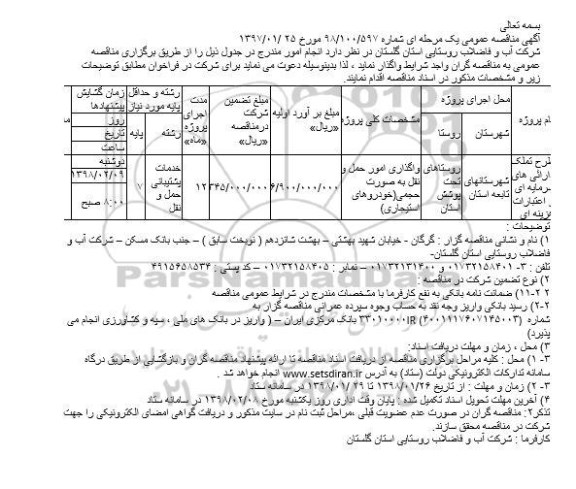 بسمه تعالی
آگهی مناقصه عمومی یک مرحله ای شماره ۹۸/۱۰۰/۵۹۷ مورخ ۲۵ /۱۳۹۷/۰۱
شرکت آب و فاضلاب روستایی استان گلستان در نظر دارد انجام امور مندرج در جدول ذیل را از طریق برگزاری مناقصه
عمومی به مناقصه گران واجد شرایط واگذار نماید ، لذا بدینوسیله دعوت می نماید برای شرکت در فراخوان مطابق توضیحات
زیر و مشخصات مذکور در اسناد مناقصه اقدام نمایند.
ام پروژه
محل اجرای پروژه
شهرستان
روستا
مشخصات کلی پروژه
مبلغ بر آورد اولیه
«ریال»
مبلغ تضمین
شرکت
درمناقصه
«ریال»
مدت
اجرای
پروژه
«ماه»
رشته و حداقل
پایه مورد نیاز
رشته
پایه
زمان گشایش
پیشنهادها
روز
تاریخ
ساعت
طرح تملک
دارائی های
سرمایه ای
اعتبارات
هزینه ای
شهرستانهای
تابعه استان
روستاهای
تحت
پوشش
استان
واگذاری امور حمل و
نقل به صورت
حجمی(خودروهای
استیجاری)
۶/۹۰۰/۰۰۰/۰۰۰
۳۴۵/۰۰۰/۰۰۰
۱۲
خدمات
پشتیبانی
حمل و
نقل
۷
دوشنبه
۱۳۹۸/۰۲/۰۹
۸:۰۰ صبح
توضیحات :
۱) نام و نشانی مناقصه گزار : گرگان - خیابان شهید بهشتی – بهشت شانزدهم ( نوبخت سابق ) – جنب بانک مسکن – شرکت آب و
فاضلاب روستایی استان گلستان-
تلفن : ۳- ۰۱۷۳۲۱۵۸۴۰۱ و ۰۱۷۳۲۱۳۱۴۰۰ – نمابر : ۰۱۷۳۲۱۵۸۴۰۵ – کد پستی : ۴۹۱۵۶۵۸۵۳۴
۲) نوع تضمین شرکت در مناقصه :
۲-۱۱ ۲) ضمانت نامه بانکی به نفع کارفرما با مشخصات مندرج در شرایط عمومی مناقصه
۲-۲) رسید بانکی واریز وجه نقد به حساب وجوه سپرده عمرانی مناقصه گزار به
شماره (۴۰۰۱۱۱۷۶۰۷۱۴۵۰۰۳) IR۳۳۰۱۰۰۰۰ بانک مرکزی ایران – ( واریز در بانک های ملی ، سپه و کشاورزی انجام می
پذیرد)
۳) محل ، زمان و مهلت دریافت اسناد:
۳- ۱) محل : کلیه مراحل برگزاری مناقصه از دریافت اسناد مناقصه تا ارائه پیشنهاد مناقصه گران و بازگشایی از طریق درگاه
سامانه تدارکات الکترونیکی دولت (ستاد) به آدرس www.setsdiran.ir انجام خواهد شد .
۳- ۲) زمان و مهلت : از تاریخ ۱۳۹۸/۰۱/۲۶ تا ۲۹ /۱۳۹۸/۰۱ در سامانه ستاد
۴) آخرین مهلت تحویل اسناد تکمیل شده : پایان وقت اداری روز یکشنبه مورخ ۱۳۹۸/۰۲/۰۸ در سامانه ستاد
تذکر۲: مناقصه گران در صورت عدم عضویت قبلی ،مراحل ثبت نام در سایت مذکور و دریافت گواهی امضای الکترونیکی را جهت
شرکت در مناقصه محقق سازند.
کارفرما : شرکت آب و فاضلاب روستایی استان گلستان